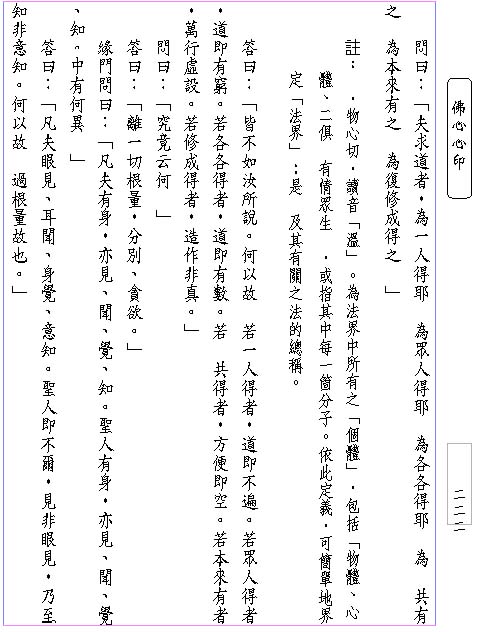 佛心心印
二二二
問曰：「夫求道者，為一人得耶 為眾人得耶 為各各得耶 為 共有
之 為本來有之 為復修成得之 」
註： ，物心切，讀音「溫」。為法界中所有之「個體」，包括「物體、心
體、二俱 有情眾生 ，或指其中每一箇分子。依此定義，可簡單地界
定「法界」：是 及其有關之法的總稱。
答曰：「皆不如汝所說。何以故 若一人得者，道即不遍。若眾人得者
，道即有窮。若各各得者，道即有數。若 共得者，方便即空。若本來有者
，萬行虛設。若修成得者，造作非真。」
問曰：「究竟云何 」
答曰：「離一切根量，分別、貪欲。」
緣門問曰：「凡夫有身，亦見、聞、覺、知。聖人有身，亦見、聞、覺
、知。中有何異 」
答曰：「凡夫眼見、耳聞、身覺、意知。聖人即不爾，見非眼見，乃至
知非意知。何以故 過根量故也。」